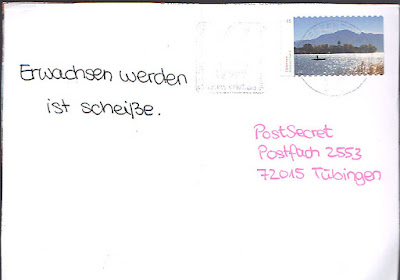 Erwachsen werden
ist scheiße.
PostSecret
Postfach 2553
72015 Tübingen